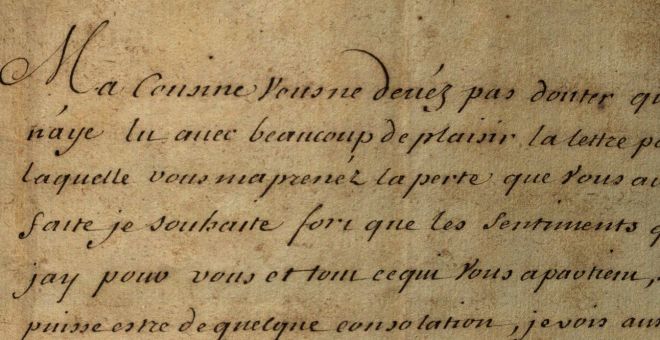 Ma Cousine Vous ne deués pas douter qu
n'aye lu auec beaucoup de plaisir la lettre pa
laquelle vous maprenéz la perte que Vous au
faite je souhaite fort que les Sentiments q
jay pour vous et tout ce qui Vous apartient,
puisse estre de quelque consolation, je vois aus